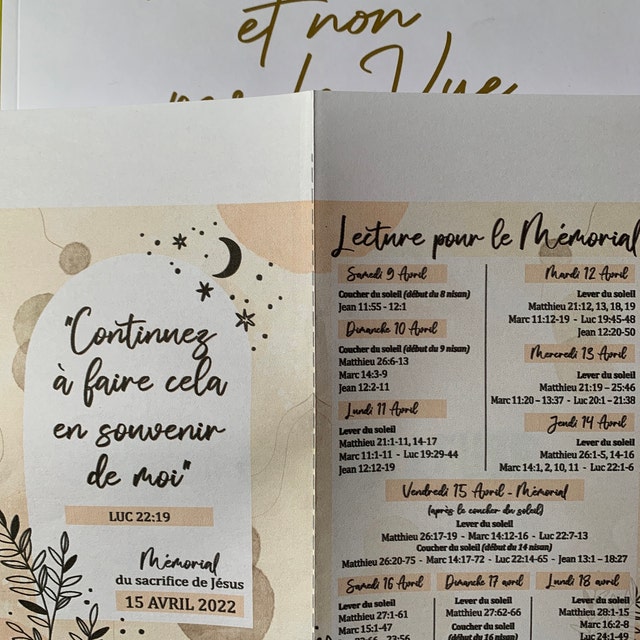 et non
par la Vue
"Continuez
à faire cela
en souvenir
de moi"
LUC 22:19
Mémorial
du sacrifice de Jésus
15 AVRIL 2022
Lecture pour le Mémorial
Samedi 9 Avril
Coucher du soleil (début du 8 nisan)
Jean 11:55 - 12:1
Dimanche 10 Avril
Coucher du soleil (début du 9 nisan)
Matthieu 26:6-13
Marc 14:3-9
Jean 12:2-11
Lundi 11 Avril
Lever du soleil
Matthieu 21:1-11, 14-17
Marc 11:1-11 - Luc 19:29-44
Jean 12:12-19
Mardi 12 Avril
Lever du soleil
Matthieu 21:12, 13, 18, 19
Marc 11:12-19 - Luc 19:45-48
Jean 12:20-50
Mercredi 13 Avril
Lever du soleil
Matthieu 21:19 – 25:46
Marc 11:20 – 13:37 - Luc 20:1 – 21:38
Jeudi 14 Avril
Lever du soleil
Matthieu 26:1-5, 14-16
Marc 14:1, 2, 10, 11 - Luc 22:1-6
Vendredi 15 Avril - Mémorial
(après le coucher du soleil)
Lever du soleil
Matthieu 26:17-19 - Marc 14:12-16 - Luc 22:7-13
Coucher du soleil (début du 14 nisan)
Matthieu 26:20-75 - Marc 14:17-72 - Luc 22:14-65 - Jean 13:1 – 18:27
Samedi 16 Avril
Lever du soleil
Matthieu 27:1-61
Marc 15:1-47
Dimanche 17 avril
Lever du soleil
Matthieu 27:62-66
Coucher du soleil
(début du 16 nisan)
Lundi 18 avril
Lever du soleil
Matthieu 28:1-15
Marc 16:2-8